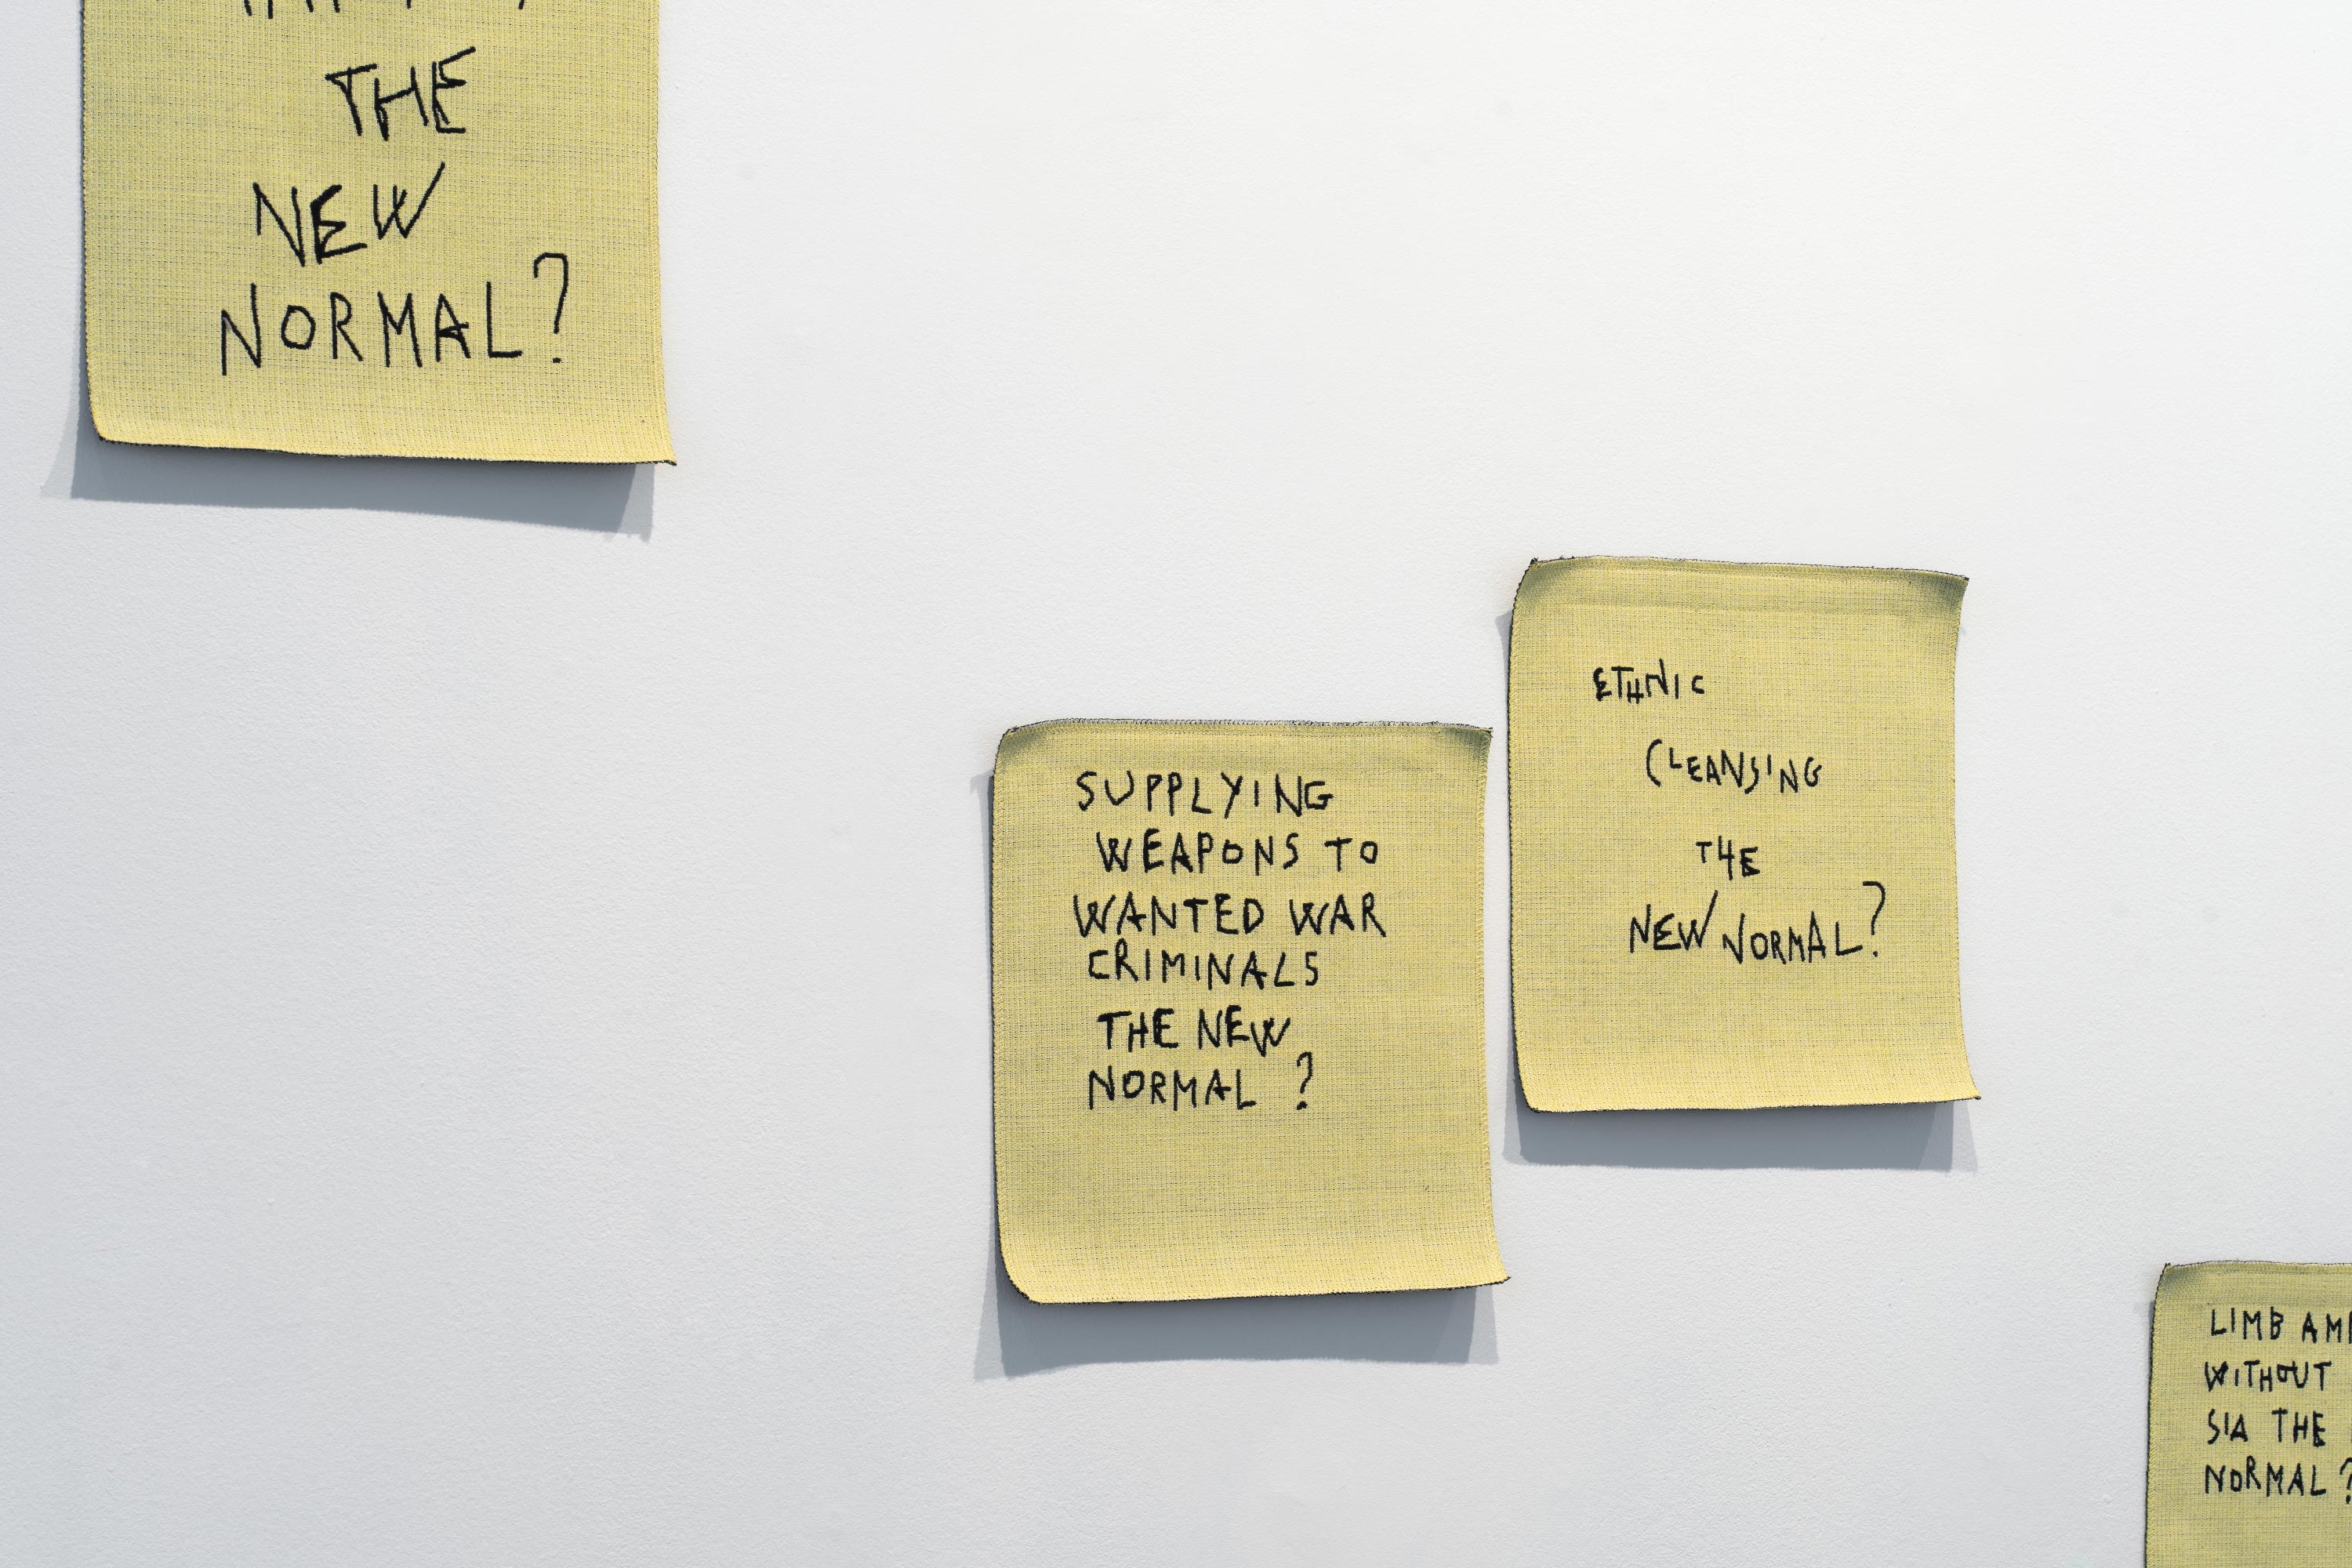 THE
NEW
NORMAL?
SUPPLYING
WEAPONS TO
WANTED WAR
CRIMINALS
THE NEW
NORMAL ?
ETHNIC
CLEANSING
THE
NEW NORMAL?
LIMB
WITHOUT
SIA THE
NORMAL?